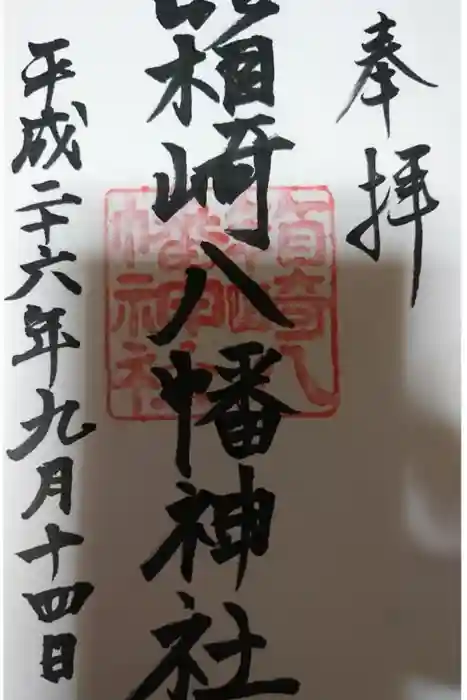 奉拝
箱崎八幡神社
平成二十六年九月十四日
箱崎八
幡神社